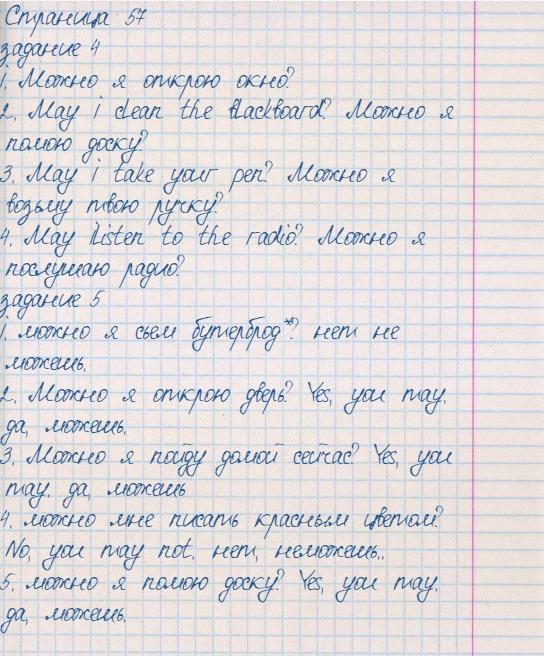 Страница 57
задание 4
1. Можно я открою окно?
2. May i clean the blackboard? Можно я
помою доску?
3. May i take your pen? Можно я
возьму твою ручку?
4. May i listen to the radio? Можно я
послушаю радио?
задание 5
1. можно я сьем бутерброд*? нет не
можешь.
2. Можно я открою дверь? Yes, you may.
да, можешь.
3. Можно я пойду домой сейчас? Yes, you
may. да, можешь
4. можно мне писать красным цветом?
No, you may not. нет, неможешь..
5. можно я помою доску? Yes, you may.
да, можешь.